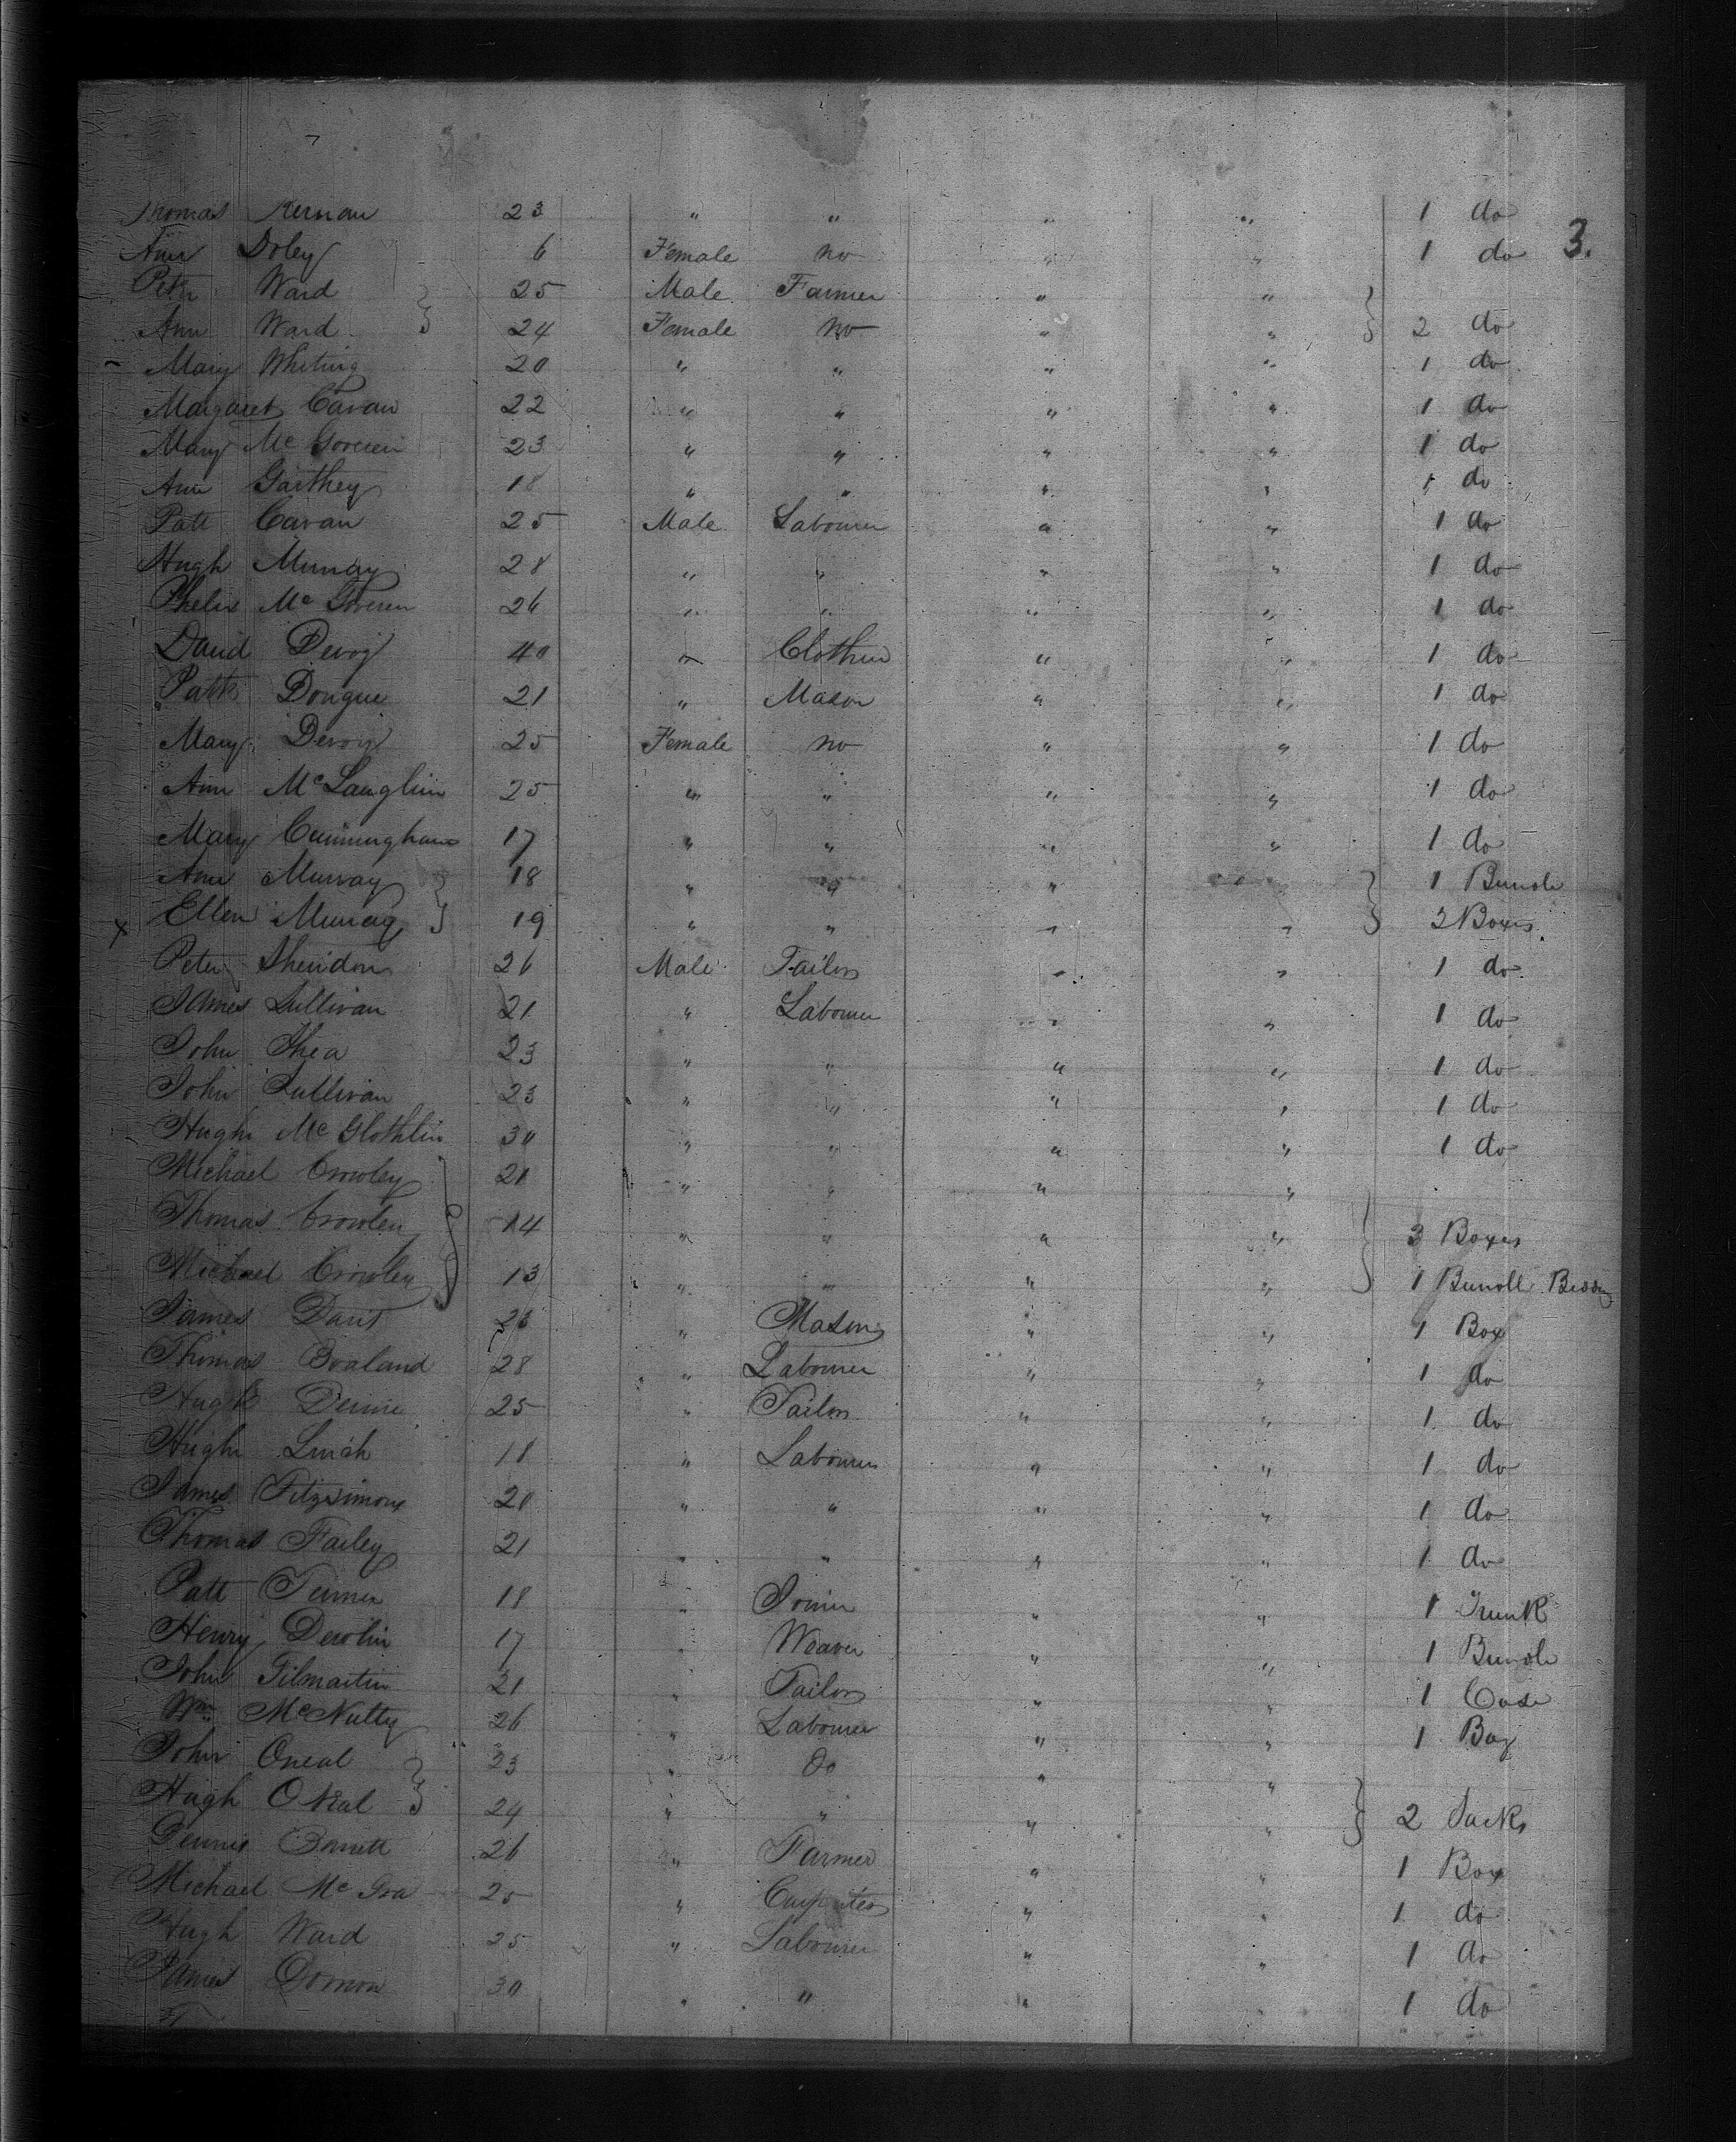 3.
Thomas Kernan 23 " " " " 1 do
Ann Doley 6 Female no " " 1 do
Peter Ward 25 Male Farmer " "
Ann Ward 24 Female no " " 2 do
Mary Whiting 20 " " " " 1 do
Margaret Cavan 22 " " " " 1 do
Mary Mc Goveren 23 " " " " 1 do
Ann Garthey 18 " " " " 1 do
Patt Cavan 25 Male Labourer " " 1 do
Hugh Murray 28 " " " " 1 do
Phelix Mc Goveren 26 " " " " 1 do
David Devoy 40 " Clothier " " 1 do
Patk Dongue 21 " Mason " " 1 do
Mary Devoy 25 Female no " " 1 do
Ann McLaughlin 25 " " " " 1 do
Mary Cunningham 17 " " " " 1 do
Ann Murray 18 " " " 1 Bundle
x Ellen Murray 19 " " " " 3 Boxes
Peter Sheridon 26 Male Tailor " " 1 do
James Sullivan 21 " Labourer " " 1 do
John Shea 23 " " " " 1 do
John Sullivan 23 " " " " 1 do
Hugh Mc Glothlin 30 " " " " 1 do
Michael Crowley 21 " " " "
Thomas Crowley 14 " " " " 3 Boxes
Michael Crowley 13 " " " " 1 Bundle
James " Mason " " 1 Box
Thomas 28 " Labourer " " 1 do
Hugh 25 " Tailor " " 1 do
Hugh Linch 18 " Labourer " " 1 do
James Fitzsimons 20 " " " " 1 do
Thomas Failey 21 " " " " 1 do
Patt Turner 18 " Joiner " " 1 Trunk
Henry Devolin 17 " Weaver " " 1 Bundle
John Gilmartin 21 " Tailor " " 1 Case
Wm McNulty 26 " Labourer " " 1 Bag
John Oneal 23 " Do " "
Hugh O Neal 24 " " " " 2 Sacks
Dennis Barrett 26 " Farmer " " 1 Box
Michael Mc Gra 25 " Carpenter " " 1 do
Hugh Ward 25 " Labourer " " 1 do
James 30 " " " " 1 do